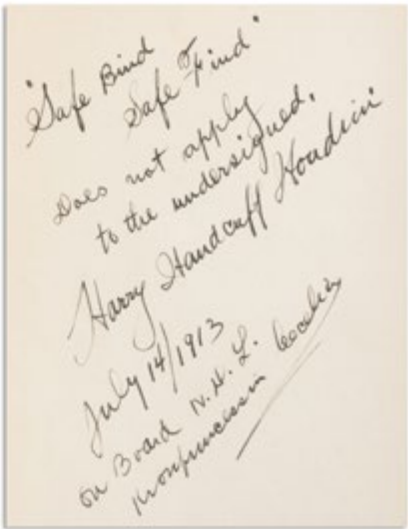 "Safe Bind
Safe Find"
Does not apply
to the undersigned.
Harry Handcuff Houdini
July 14/1913
on Board N.D.L.
Kronprincessin Cecilie